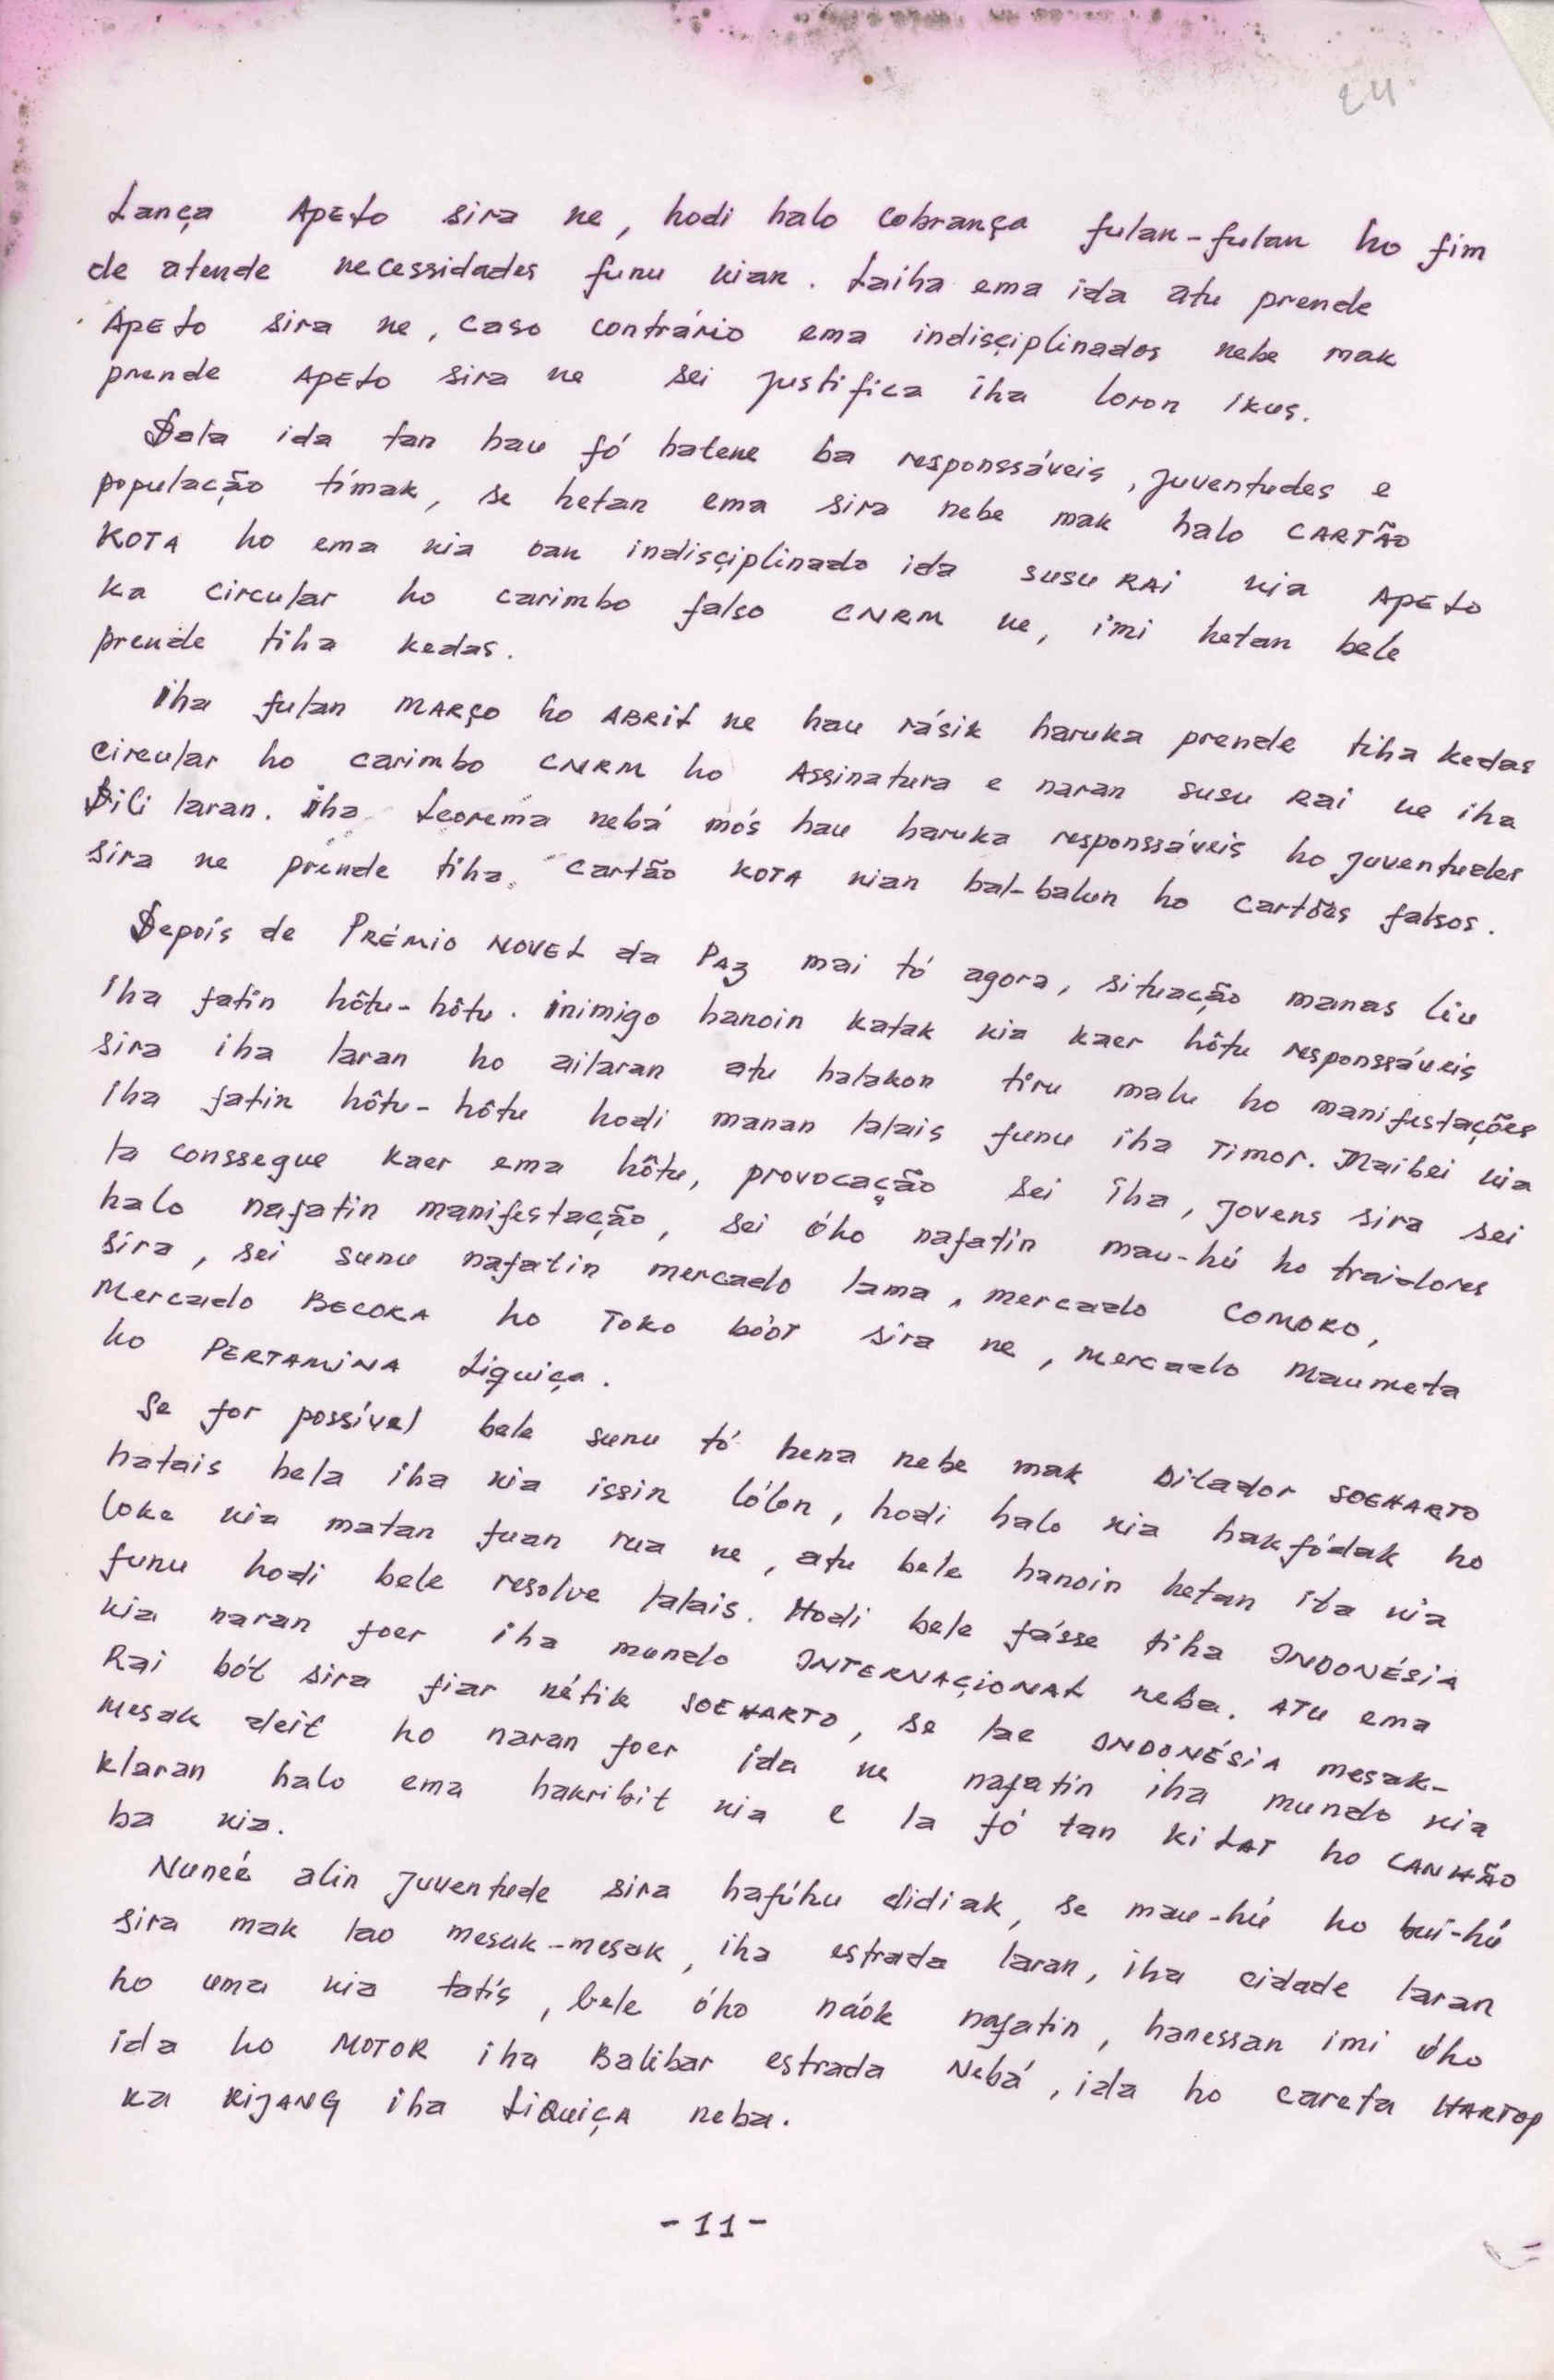 24
Lança APELO sira ne, hodi halo cobrança fulan-fulan ho fim
de atende necessidades funu nian. Laiha ema ida atu prende
APELO sira ne, caso contrário ema indisçiplinados nebe mak
prende APELO sira ne sei justifica iha loron ikus.
Dala ida tan hau fó hatene ba responssáveis, juventudes e
população tímak, se hetan ema sira nebe mak halo CARTÃO
KOTA ho ema nia oan indisçiplinado ida SUSU RAI nia APELO
ka circular ho carimbo falso CNRM ne, imi hetan bele
prende tiha kedas.
Iha fulan MARÇO ho ABRIL ne hau rásik haruka prende tiha kedas
circular ho carimbo CNRM ho Assinatura e naran susu Rai ne iha
Dili laran. Iha Leorema nebá mós hau haruka responssáveis ho juventudes
sira ne prende tiha cartão KOTA nian bal-balun ho cartões falsos.
Depois de PRÉMIO NOVEL da PAZ mai tó agora, situação manas liu
iha fatin hôtu-hôtu. Inimigo hanoin katak nia kaer hôtu responssáveis
sira iha laran ho ailaran atu halakon tiru malu ho manifestações
iha fatin hôtu-hôtu hodi manan lalais funu iha Timor. Maibei nia
la conssegue kaer ema hôtu, provocação sei iha, jovens sira sei
halo nafatin manifestação, sei óho nafatin mau-hú ho traidores
sira, sei sunu nafatin mercado lama, mercado COMORO,
Mercado BECORA ho TOKO bóot sira ne, mercado Maumeta
ho PERTAMINA Liquiça.
Se for possível bele sunu tó hena nebe mak Ditador SOEHARTO
hatais hela iha nia issin lólon, hodi halo nia hakfódak ho
loke nia matan fuan rua ne, atu bele hanoin hetan ita nia
funu hodi bele resolve lalais. Hodi bele fásse tiha INDONÉSIA
nia naran foer iha mundo INTERNAÇIONAL neba. ATU ema
Rai bót sira fiar nétik SOEHARTO, se lae INDONÉSIA mesak-
mesak deit ho naran foer ida ne nafatin iha mundo nia
klaran halo ema hakribit nia e la fó tan kiLAT ho CANHÃO
ba nia.
Nuneé alin juventude sira hafúhu didiak, se mau-hú ho bui-hú
sira mak lao mesak-mesak, iha estrada laran, iha cidade laran
ho uma nia tatís, bele óho náok nafatin, hanessan imi óho
ida ho MOTOR iha Balibar estrada Nebá, ida ho careta HARTOP
ka KIJANG iha LiQuiÇA neba.
- 11 -